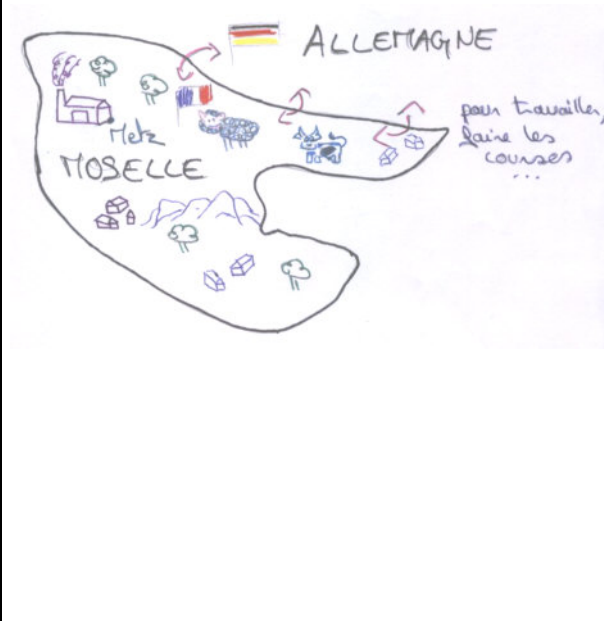 ALLEMAGNE
pour travailler,
faire les
courses
...
Metz
MOSELLE